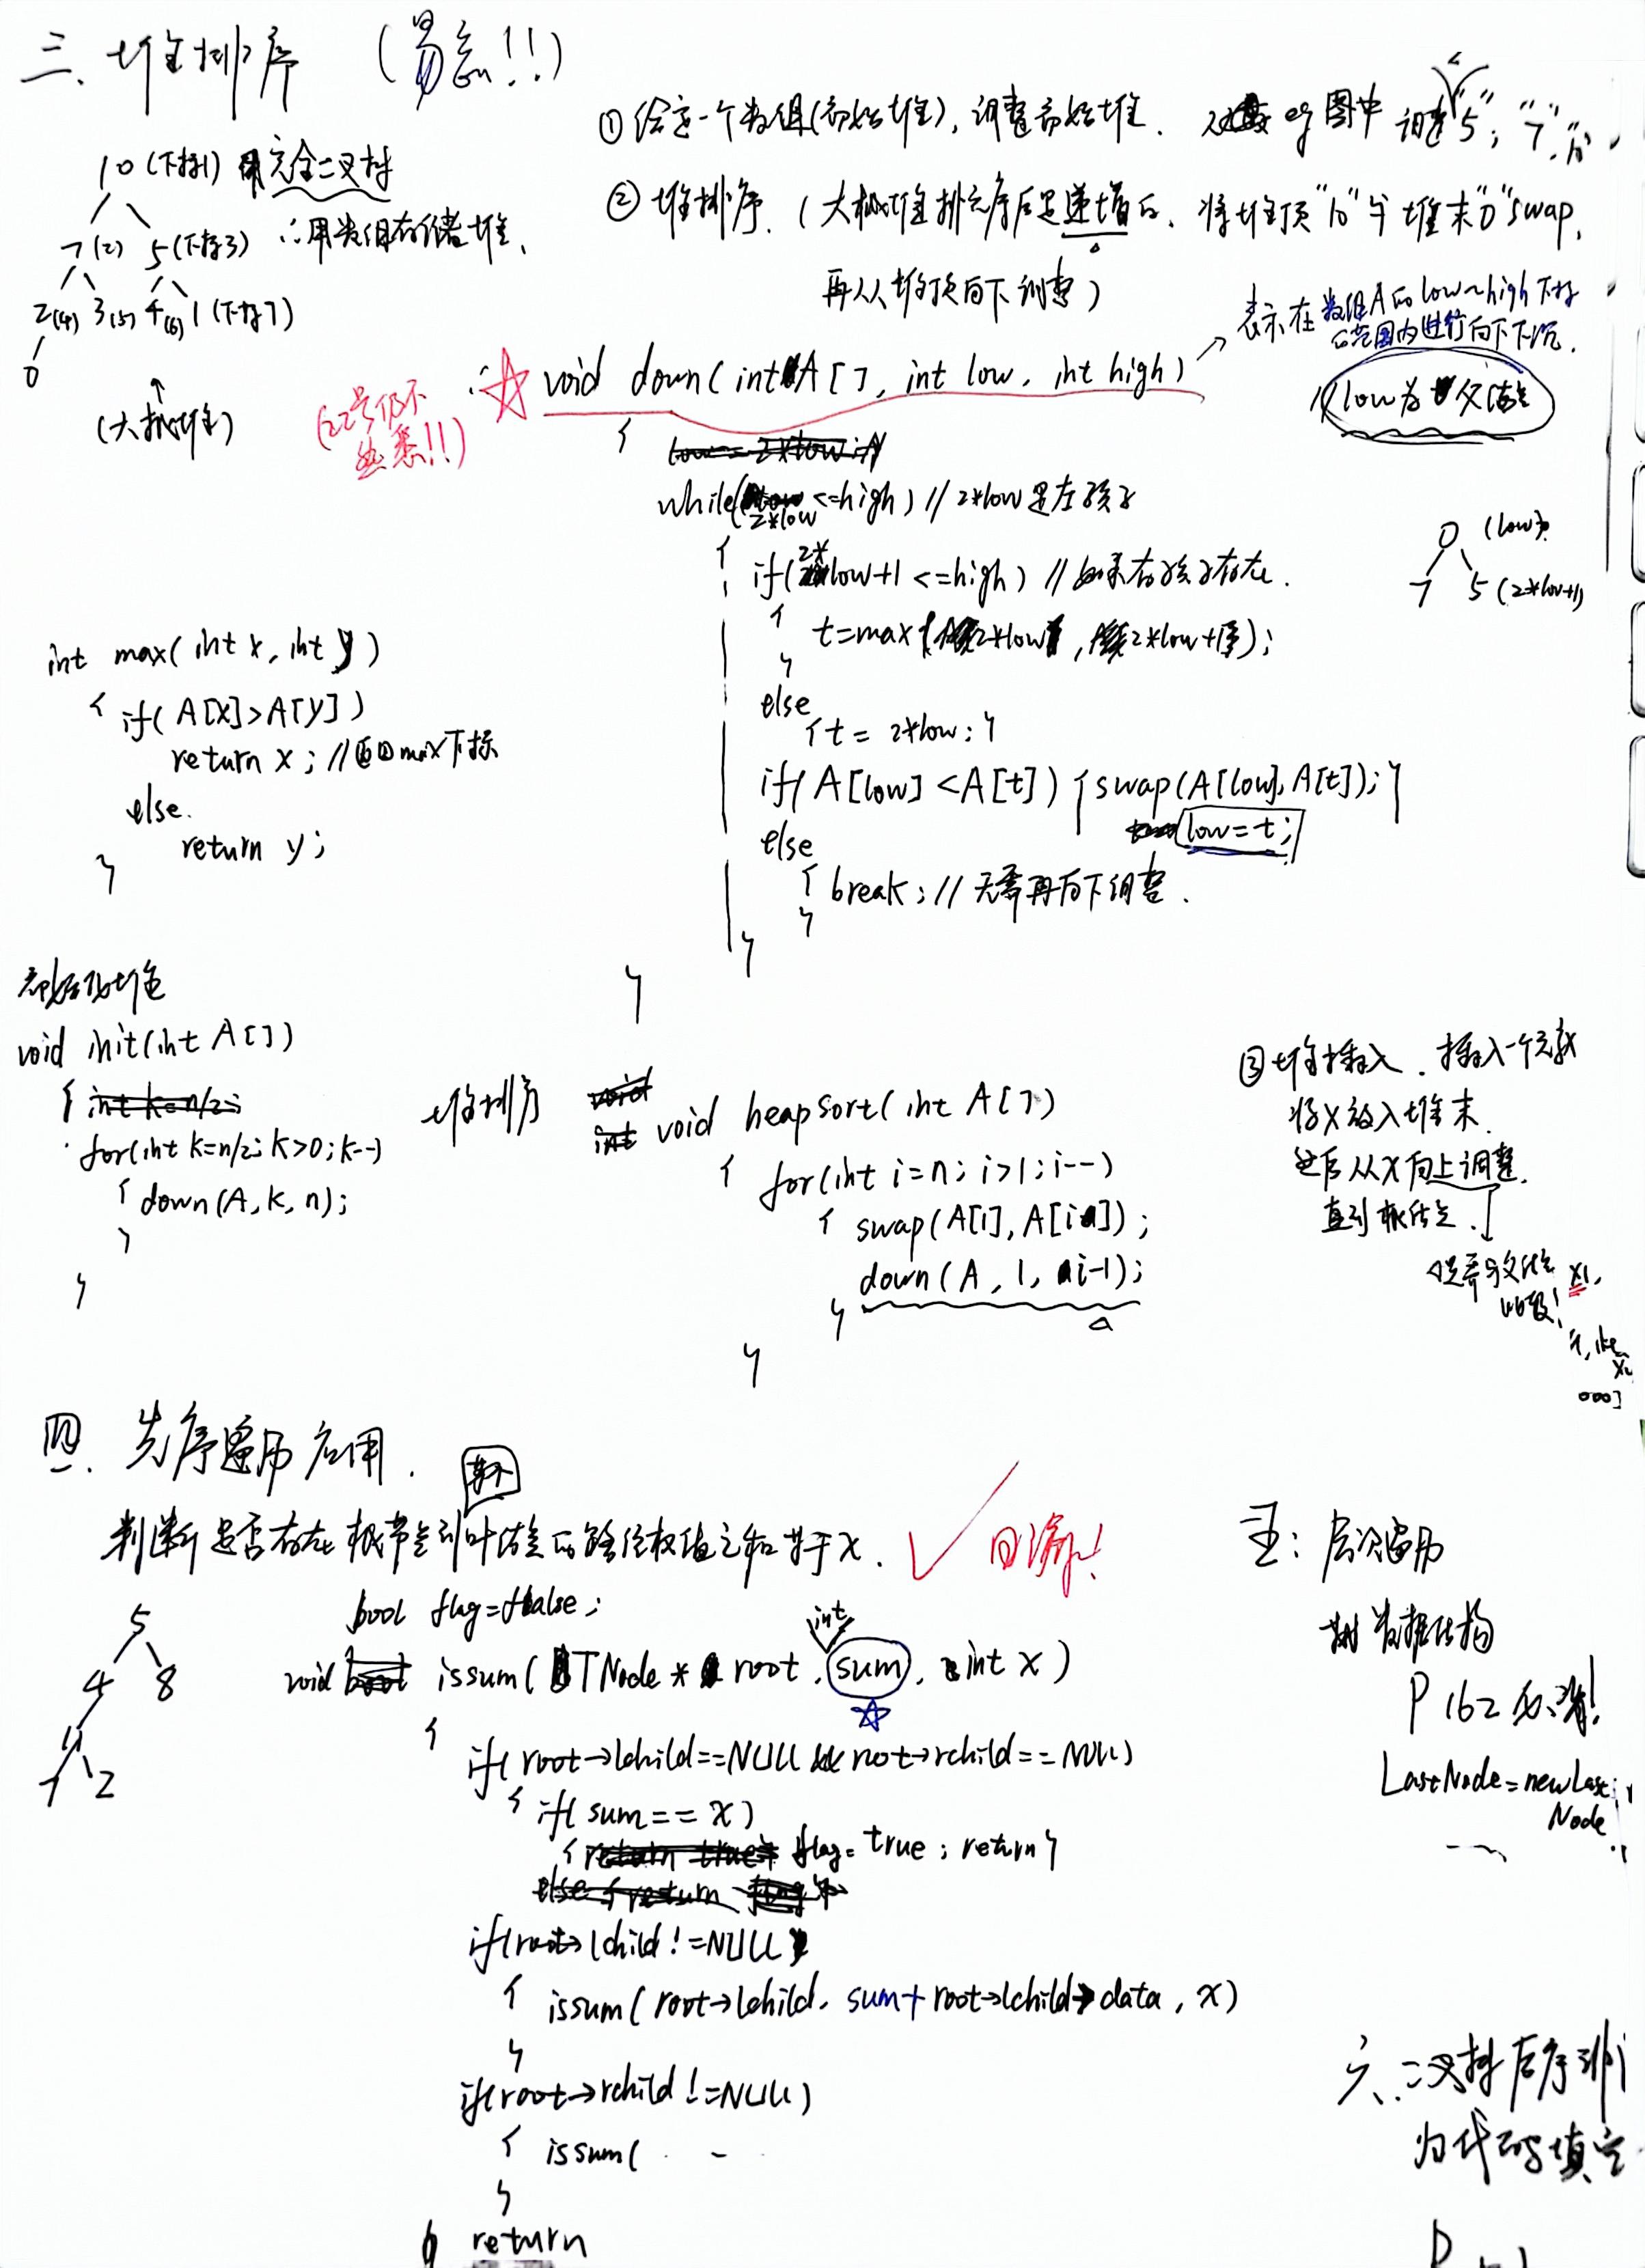 三. 堆排序 (易忘!!)
① 给定一个数组(初始堆), 调整初始堆. eg 图中 调整"5", "7", "10"
② 堆排序. (大根堆排完序后是递增的. 将堆顶"10"与堆末"0"swap,
再从堆顶向下调整)
10 (下标1) 完全二叉树
7(2) 5(下标3) ∴用数组存储堆.
2(4) 3(5) 4(6) 1(下标7)
0
(大根堆)
(22号仍不
熟悉!!)
☆ void down(int A[], int low, int high)
→ 表示在数组A的low~high下标
的范围内进行向下下沉.
low为父结点
{
while(2*low <=high) // 2*low是左孩子
{ if(2*low+1 <=high) // 如果右孩子存在.
{ t=max(2*low, 2*low+1);
}
else
{t = 2*low; }
if(A[low] <A[t]) {swap(A[low], A[t]);}
low=t;
else
{ break; // 无需再向下调整.
}
}
}
0 (low)
7 5 (2*low+1)
int max(int x, int y)
{ if(A[x]>A[y])
return x; //返回max下标
else
return y;
}
初始化堆
void init(int A[])
{ int k=n/2;
for(int k=n/2; k>0; k--)
{ down(A, k, n);
}
}
堆排序
void heapsort(int A[])
{ for(int i=n; i>1; i--)
{ swap(A[1], A[i]);
down(A, 1, i-1);
}
}
③ 堆插入. 插入一个元素
将x放入堆末.
然后从x向上调整.
直到根结点.
只需与父结点
比较!
四. 先序遍历应用.
判断是否存在根节点到叶结点的路径权值之和等于x. ✓ 回溯!
bool flag=false;
void issum(BTNode * root, int sum, int x)
{
if(root->lchild==NULL && root->rchild==NULL)
{ if(sum == x)
{ flag= true; return }
if(root->lchild !=NULL)
{ issum(root->lchild, sum+root->lchild->data, x)
}
if(root->rchild !=NULL)
{ issum(
}
return
5
4 8
11
7 2
五: 层次遍历
树 数据结构
P162 必看!
LastNode=newLast
Node
六、二叉树后序非
归代码填空